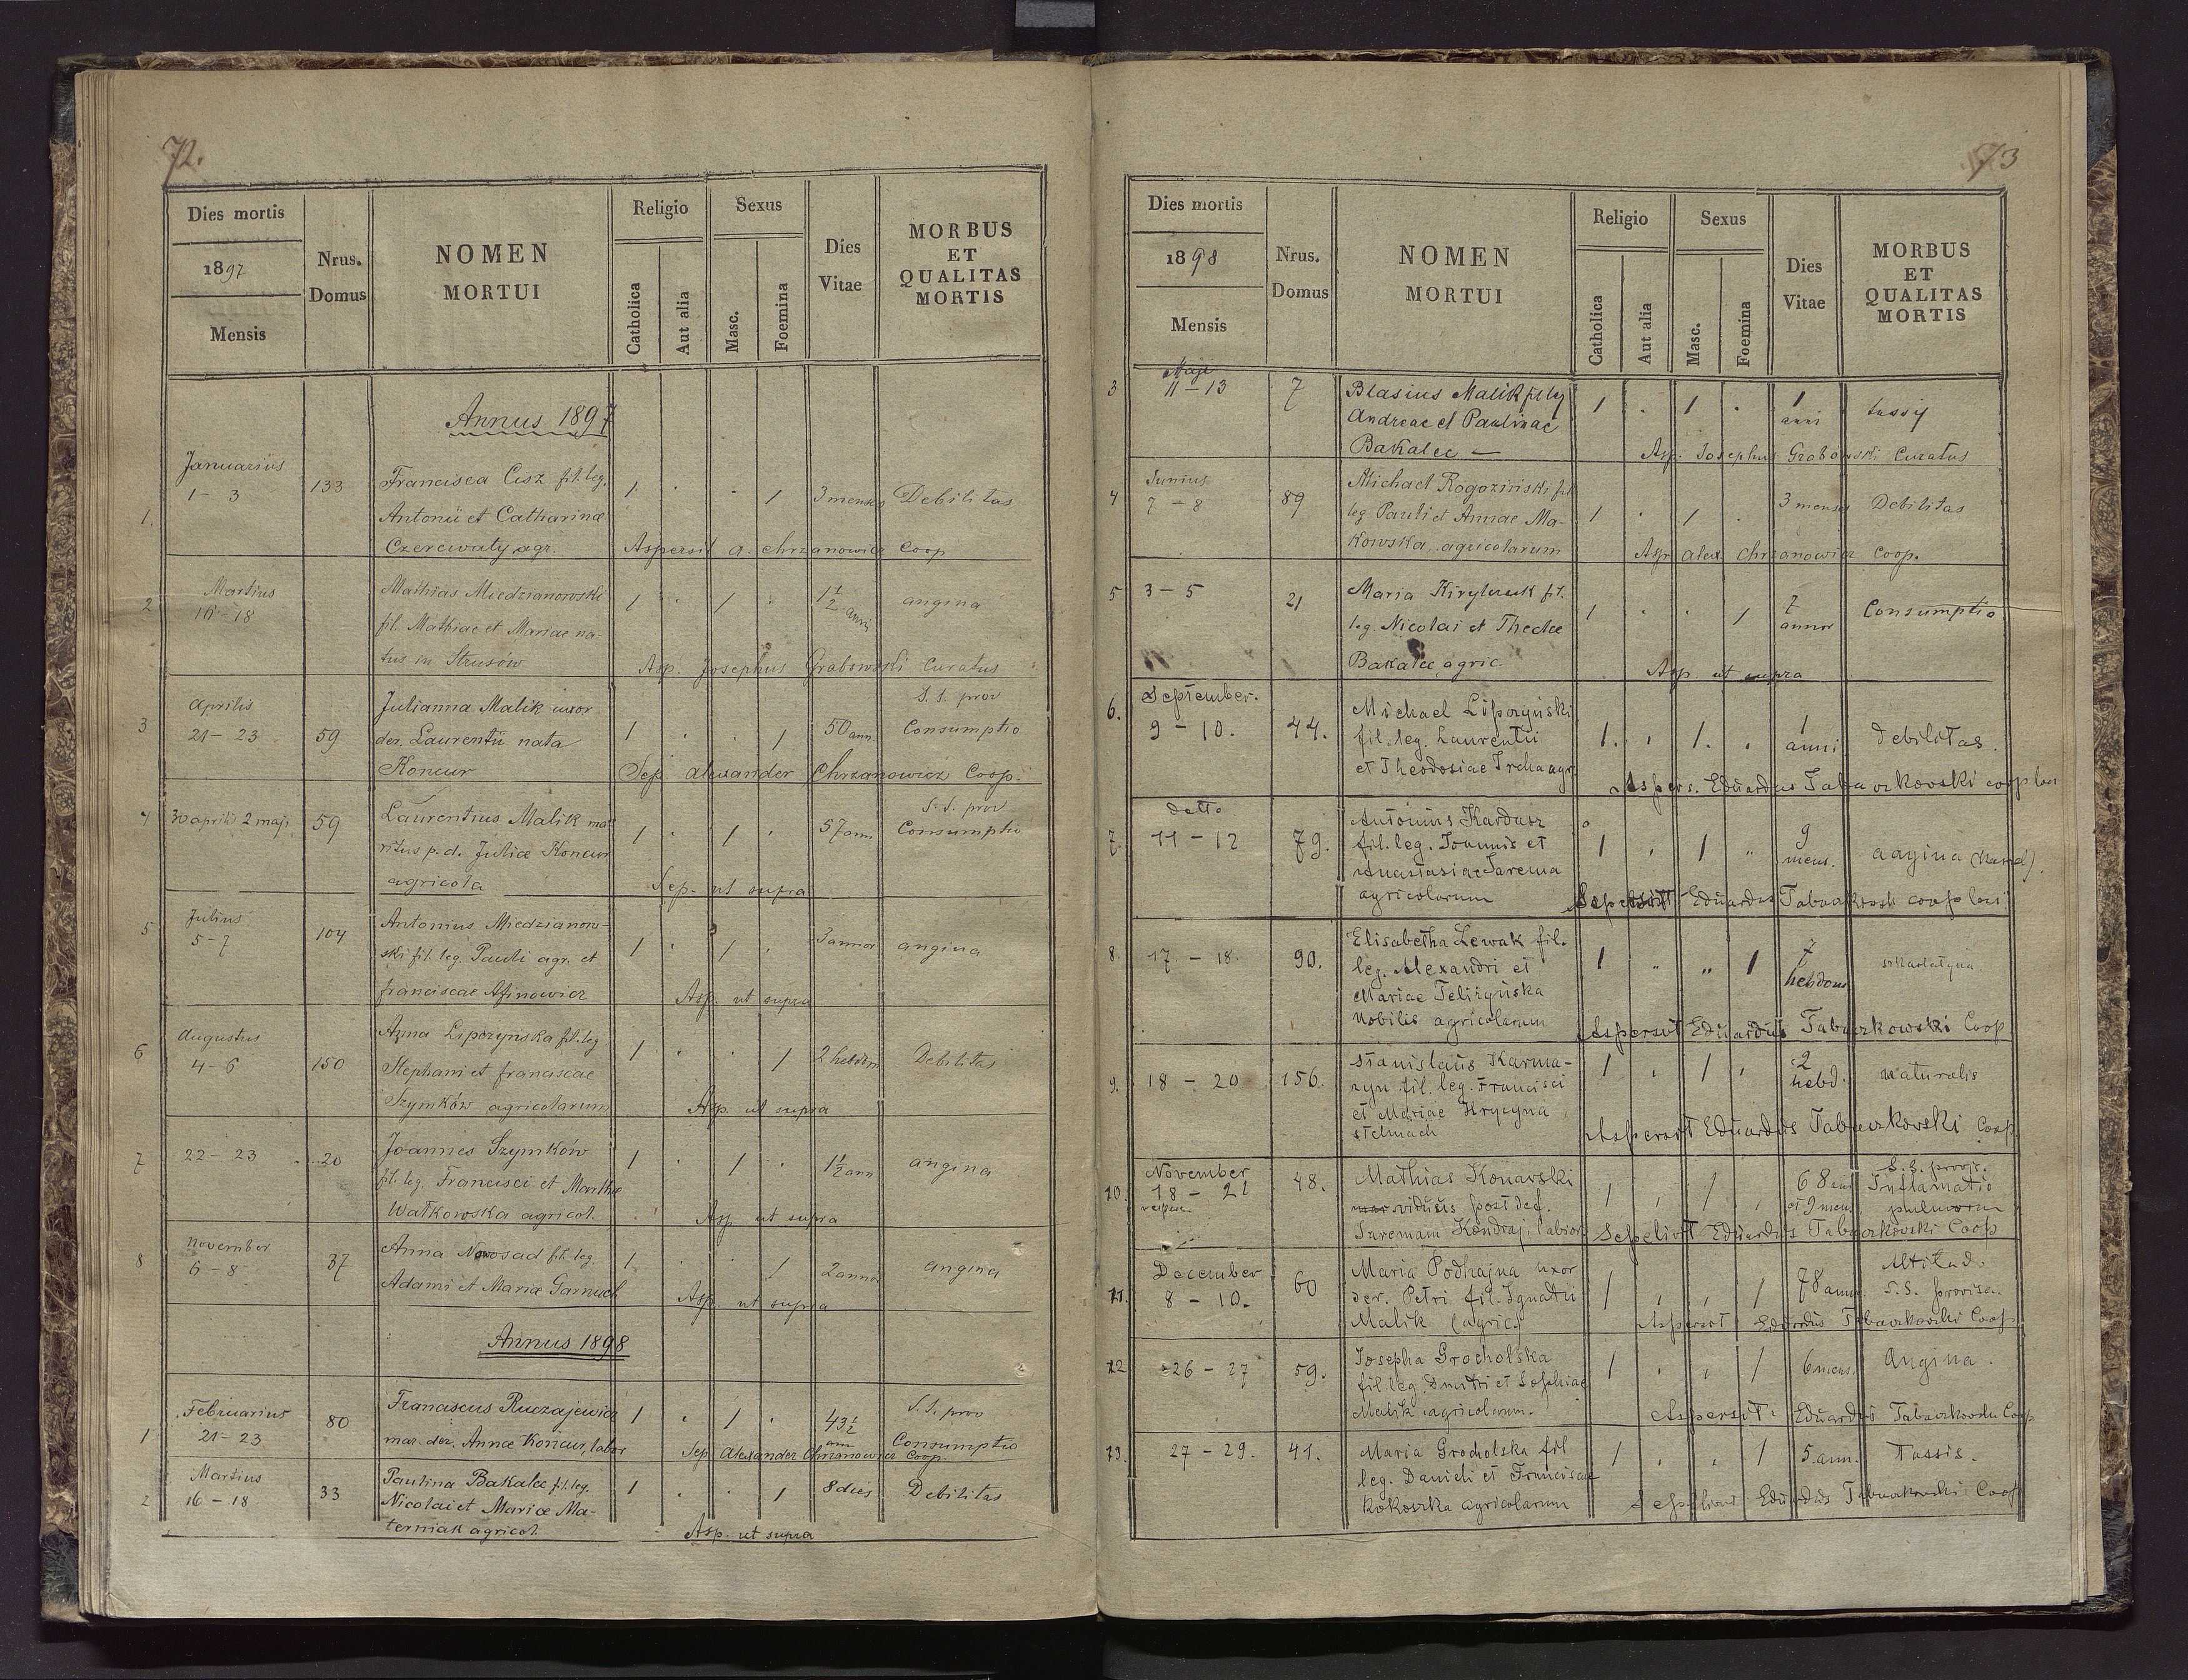 72.
Dies mortis
1897
Mensis
Nrus.
Domus
NOMEN
MORTUI
Religio
Catholica
Aut alia
Sexus
Masc.
Foemina
Dies
Vitae
MORBUS
ET
QUALITAS
MORTIS
Annus 1897
1. Januarius
1 - 3 133 Francisca Cisz fil. leg. 1 . . 1 3 menses Debilitas
Antonii et Catharinæ
Czerewaty agr. Aspersit A. Chrzanowicz Coop
2 Martius
16-18 Mathias Miedzianowski 1 . 1 . 1½ anni angina
fil. Mathiae et Mariae na-
tus in Strusów Asp. Josephus Grabowski Curatus
3 Aprilis
21-23 59 Julianna Malik uxor 1 . . 1 50 ann S.S. prov
Consumptio
der. Laurentii nata
Koncur Sep Alexander Chrzanowicz Coop.
4 30 aprilis 2 maji 59 Laurentius Malik ma- 1 . 1 . 57 ann S.S. prov
Consumptio
ritus p.d. Juliæ Koncur
agricola Sep. ut supra
5 Julius
5-7 104 Antonius Miedzianow- 1 . 1 . 3 annor angina
ski fil. leg. Pauli agr. et
Franciscae Afinowicz Asp. ut supra
6 Augustus
4-6 150 Anna Lipozynska fil. leg 1 . . 1 2 hebdom Debilitas
Stephani et Franciscae
Szymków agricolarum Asp. ut supra
7 22-23 20 Joannes Szymków 1 . 1 . 1½ ann angina
fil. leg. Francisci et Marthæ
Watkowska agricol. Asp ut supra
8 November
6-8 37 Anna Nowosad fil. leg 1 . . 1 2 annor angina
Adami et Mariæ Garnuch Asp. ut supra
Annus 1898
1 Februarius
21-23 80 Franciscus Ruczajewicz 1 . 1 . 43½
ann S.S. prov
Consumptio
mar. der. Annæ Koncur, labor Sep. Alexander Chrzanowicz Coop.
2 Martius
16-18 33 Paulina Bakalec fil. leg. 1 . . 1 8 dies Debilitas
Nicolai et Mariæ Ma-
terniak agricol. Asp. ut supra
73
Dies mortis
1898
Mensis
Nrus.
Domus
NOMEN
MORTUI
Religio
Catholica
Aut alia
Sexus
Masc.
Foemina
Dies
Vitae
MORBUS
ET
QUALITAS
MORTIS
3 Maji
11-13 7 Blasius Malik fil leg 1 . 1 . 1
anni tussis
Andreae et Paulinae
Bakalec Asp. Josephus Grabowski Curatus
4 Junius
7-8 89 Michael Rogoziński fil 1 . 1 . 3 menses Debilitas
leg Pauli et Annae Ma-
kowska, agricolarum Asp Alex Chrzanowicz Coop.
5 3-5 21 Maria Kiryluuk fil. 1 . . 1 7
annor Consumptio
leg. Nicolai et Theclae
Bakalec agric. Asp ut supra
6. September.
9-10. 44. Michael Lipozyński 1. . 1. . 1
anni debilitas.
fil. leg. Laurentii
et Theodosiae Ircha agr.
Aspers. Eduardus Tabaczkowski
7. detto
11-12 79. Antonius Kardasz 1 . 1 " 9
mens. angina
fil. leg. Joannis et
Anastasiae Jarema
agricolarum Eduardus Tabaczkowski
8. 17-18 90. Elisabetha Lewak fil. 1 " " 1 7
hebdom
leg. Alexandri et
Mariae Teliżyńska
nobilis agricolarum Aspersit Eduardus Tabaczkowski Coop
9. 18-20 156. Stanislaus Karma- 1 . 1 . 2
hebd. naturalis
zyn fil. leg. Francisci
et Mariae Hrycyna
stelmach Aspersit Eduardus Tabaczkowski Coop.
10. November
18-21 48. Mathias Konarski 1 , 1 , 68 ann
et 9 mens S.S. provis.
Inflamatio
pulmorum
mar viduus post def.
Jaremam Kondraj, labior Sepelivit Eduardus Tabaczkowski Coop
11. December
8-10. 60 Maria Podhajna uxor 1 , , 1 78 ann. Altitud.
S.S. provisa.
der. Petri fil. Ignatii
Malik (agric.) Aspersit Eduardus Tabaczkowski Coop.
12 26-27 59. Josepha Grocholska 1 . , 1 6 mens. Angina.
fil. leg. Dmitri et Sophiae
Malik agricolarum. Aspersit Eduardus Tabaczkowski Coop
13. 27-29. 41. Maria Grocholska fil 1 , , 1 5. ann. Tussis.
leg. Danieli et Franciscae
Kokoszka agricolarum Sepelivit Eduardus Tabaczkowski Coop